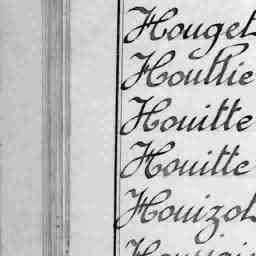 Houget
Houllie
Houitte
Houitte
Houizot